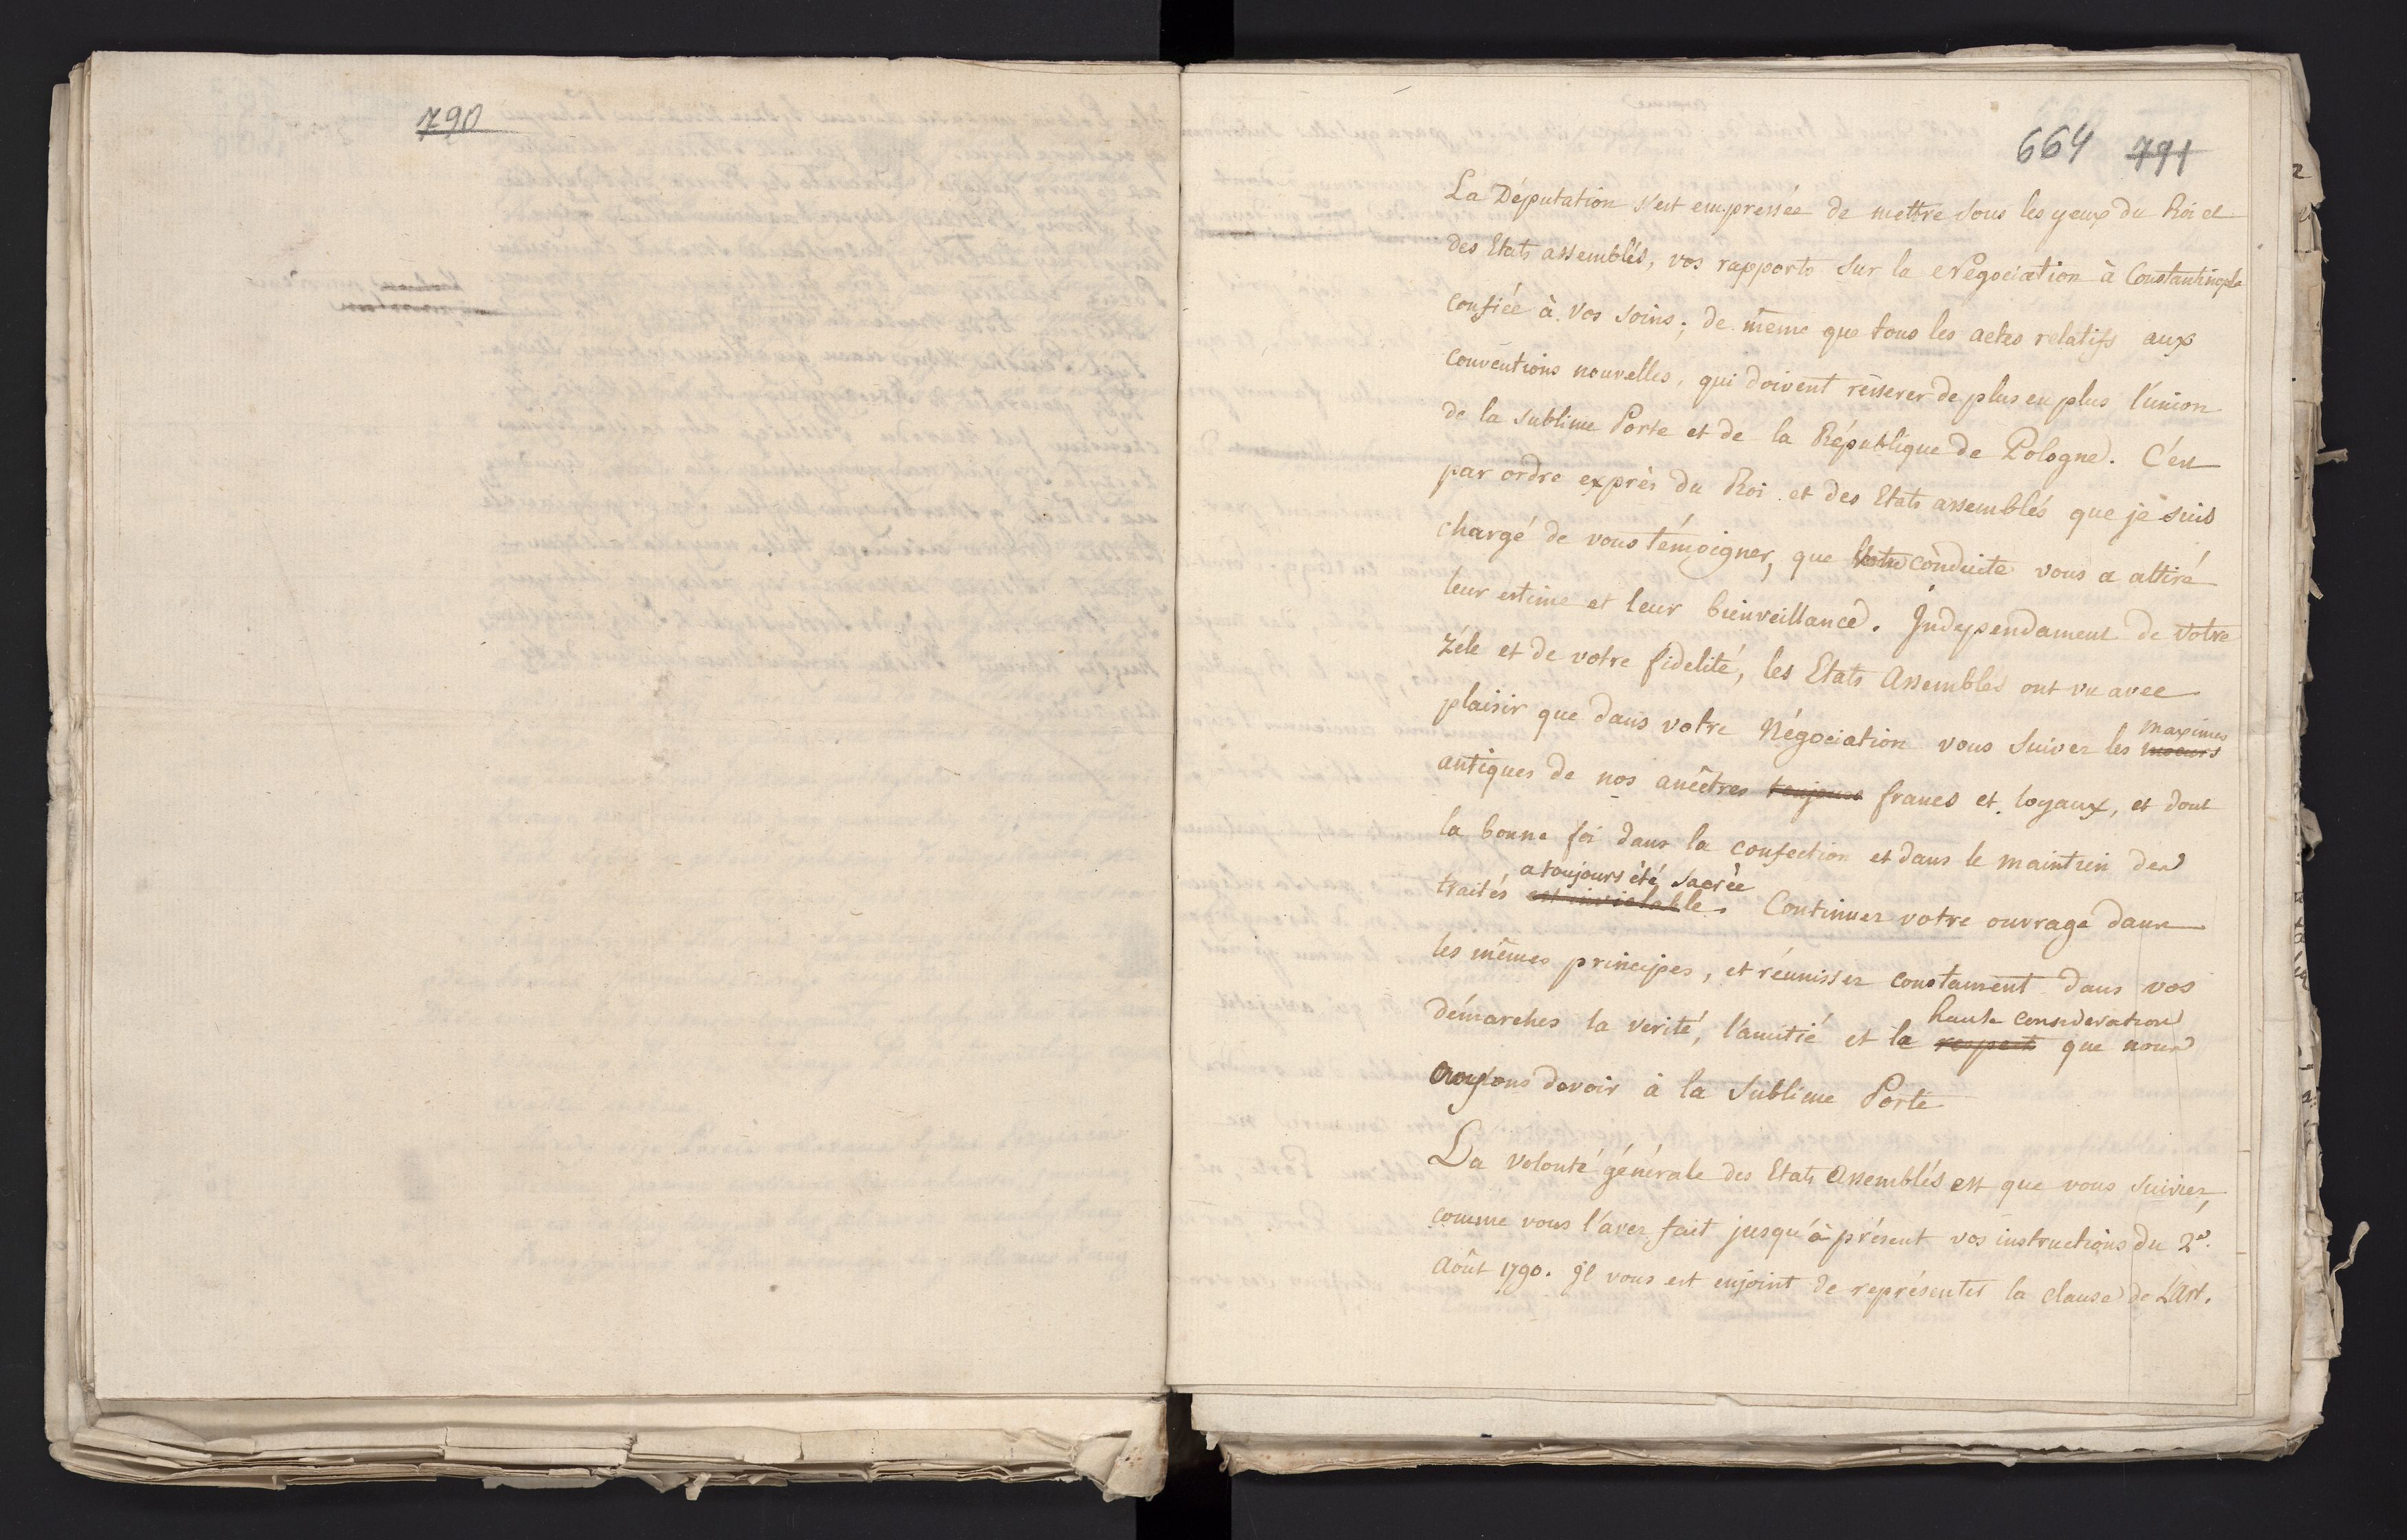 790
664 791
La Députation s'est empressée de mettre sous les yeux du Roi et
des Etats assemblés, vos rapports sur la Négociation à Constantinople
confiée à vos soins; de même que tous les actes relatifs aux
conventions nouvelles, qui doivent résserer de plus en plus l'union
de la Sublime Porte et de la République de Pologne. C'est
par ordre exprès du Roi et des Etats assemblés que je suis
chargé de vous témoigner, que votre conduite vous a attiré
leur estime et leur bienveillance. Independament de votre
zéle et de votre fidelité, les Etats Assemblés ont vu avec
maximes
plaisir que dans votre Négociation vous suivez les moeurs
antiques de nos ancêtres toujours francs et loyaux, et dont
la bonne foi dans la confection et dans le maintien des
a toujours été sacrée
traités est inviolable. Continuez votre ouvrage dans
les mêmes principes, et réunissez constament dans vos
haute consideration
démarches la verité, l'amitié et la respect que nous
croyons devoir à la Sublime Porte
La volonté générale des Etats Assemblés est que vous suiviez,
comme vous l'avez fait jusqu'à présent vos instructions du 2d.
Août 1790. Il vous est enjoint de représenter la clause de L'Art.